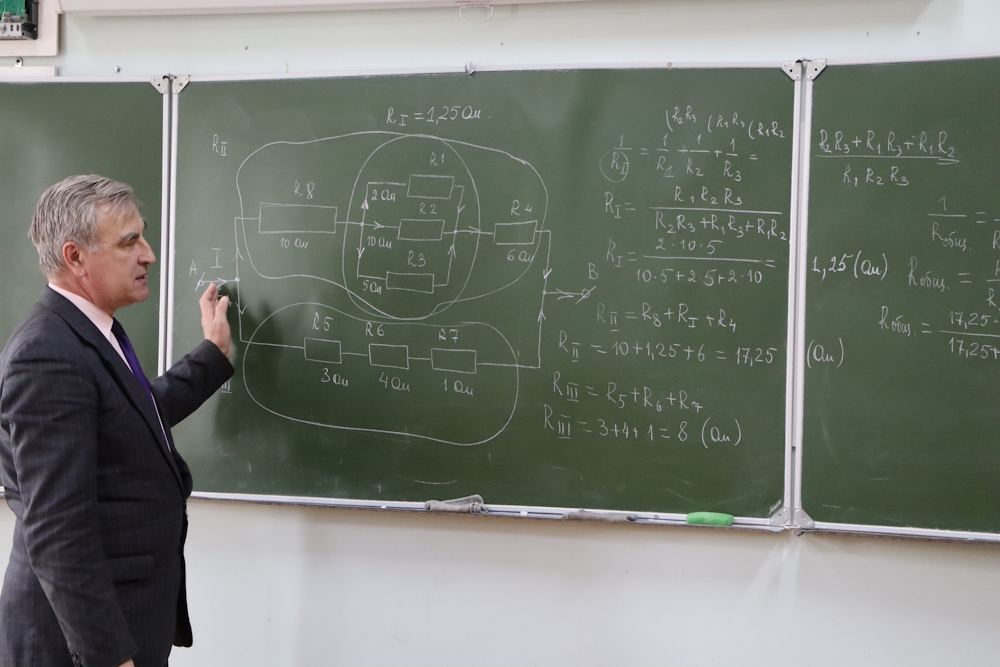 R_I = 1,25 Ом.
R_II
R1
2 Ом
R8
10 Ом
R2
10 Ом
R3
5 Ом
R4
6 Ом
A
I
B
R5
3 Ом
R6
4 Ом
R7
1 Ом
(R2R3 (R1R3 (R1R2
1/R_I = 1/R1 + 1/R2 + 1/R3 =
R_I = R1 R2 R3 / R2R3 + R1R3 + R1R2
R_I = 2·10·5 / 10·5+2·5+2·10 =
1,25 (Ом)
R_II = R8 + R_I + R4
R_II = 10 + 1,25 + 6 = 17,25 (Ом)
R_III = R5 + R6 + R7
R_III = 3+4+1 = 8 (Ом)
R2R3 + R1R3 + R1R2 / R1 R2 R3
1/Rобщ. =
Rобщ. =
Rобщ. = 17,25 · / 17,25+